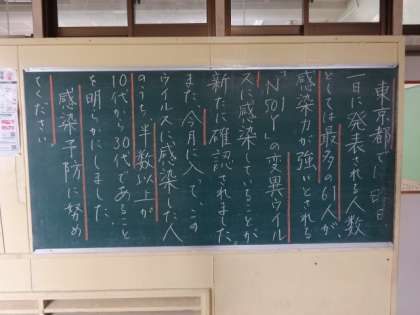 東京都で 日
一日に発表される人数
としては最多の61人が、
感染力が強いとされる
「N501Y」の変異ウイル
スに感染していることが
新たに確認されました。
また、今月に入って、この
ウイルスに感染した人
のうち、半数以上が
10代から30代であること
を明らかにしました。
感染予防に努め
てください。